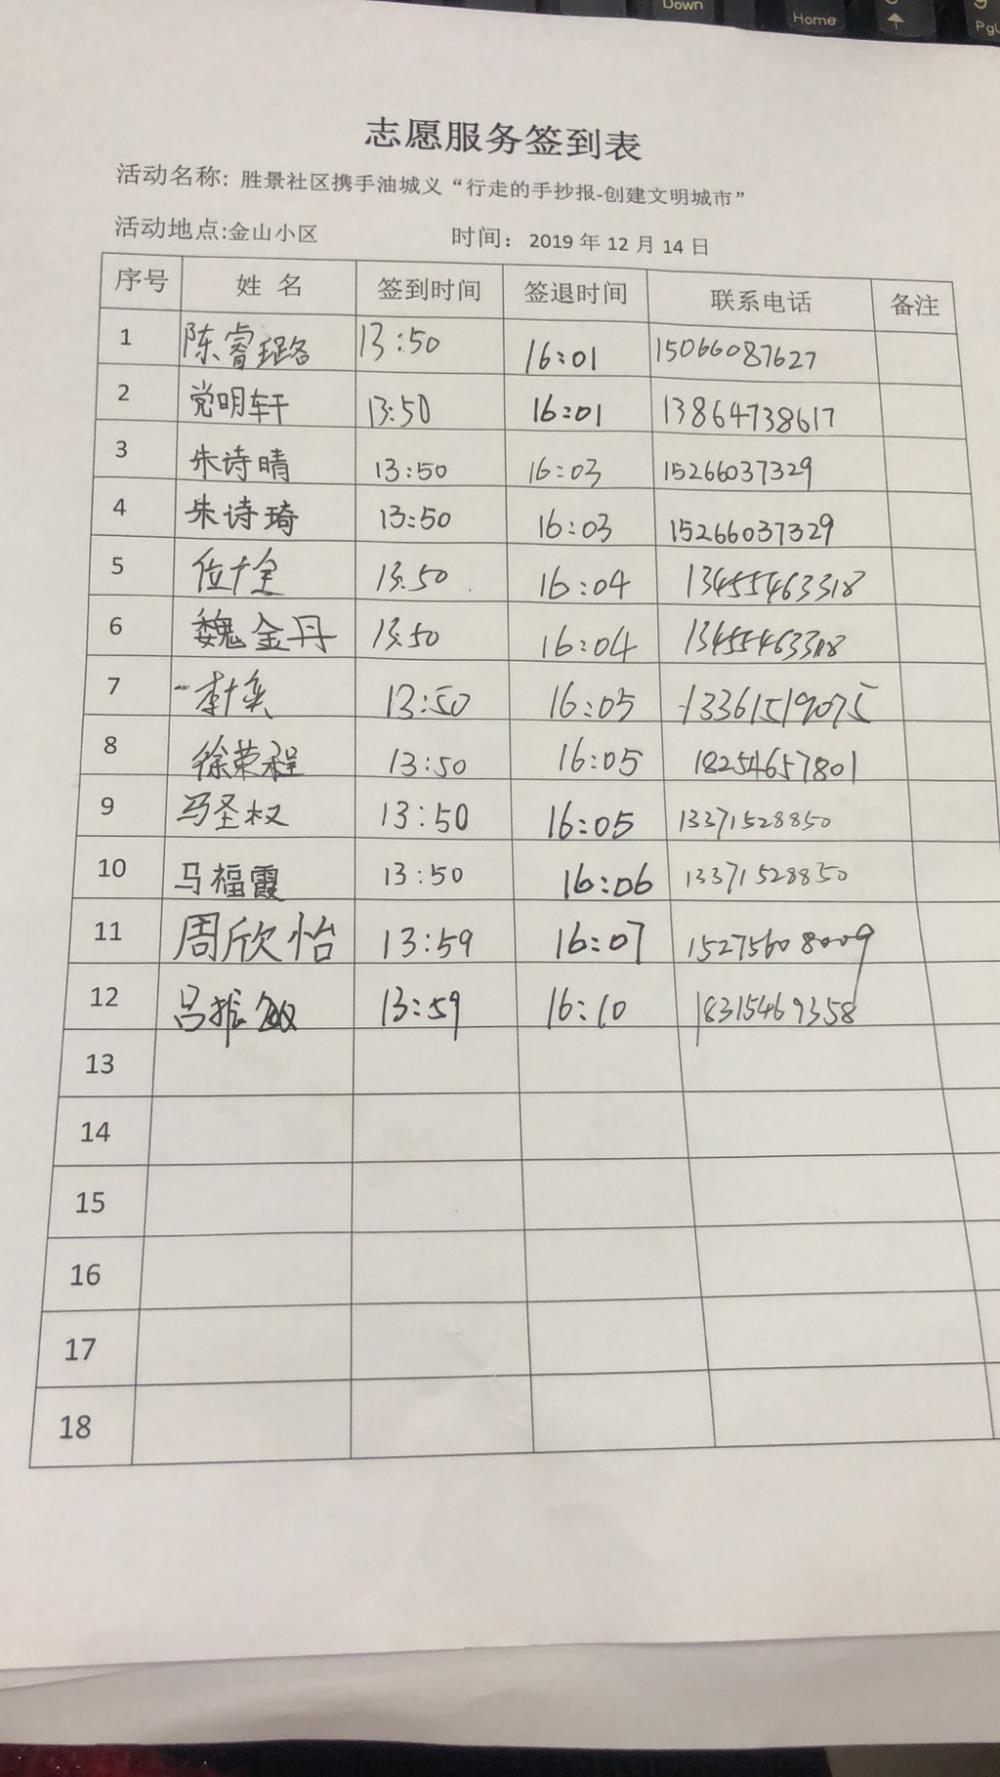 Down
Home
志愿服务签到表
活动名称: 胜景社区携手油城义“行走的手抄报-创建文明城市”
活动地点:金山小区 时间：2019 年 12 月 14 日
序号 姓 名 签到时间 签退时间 联系电话 备注
1 陈睿璐 13:50 16:01 15066087627
2 党明轩 13:50 16:01 13864738617
3 朱诗晴 13:50 16:03 15266037329
4 朱诗琦 13:50 16:03 15266037329
5 13:50 16:04 13455463318
6 魏金丹 13:50 16:04 13455463318
7 13:50 16:05 13361519075
8 徐荣程 13:50 16:05 18254657801
9 马圣权 13:50 16:05 13371528850
10 马福霞 13:50 16:06 13371528850
11 周欣怡 13:59 16:07 15275608009
12 吕振 13:59 16:10 18315469358
13
14
15
16
17
18